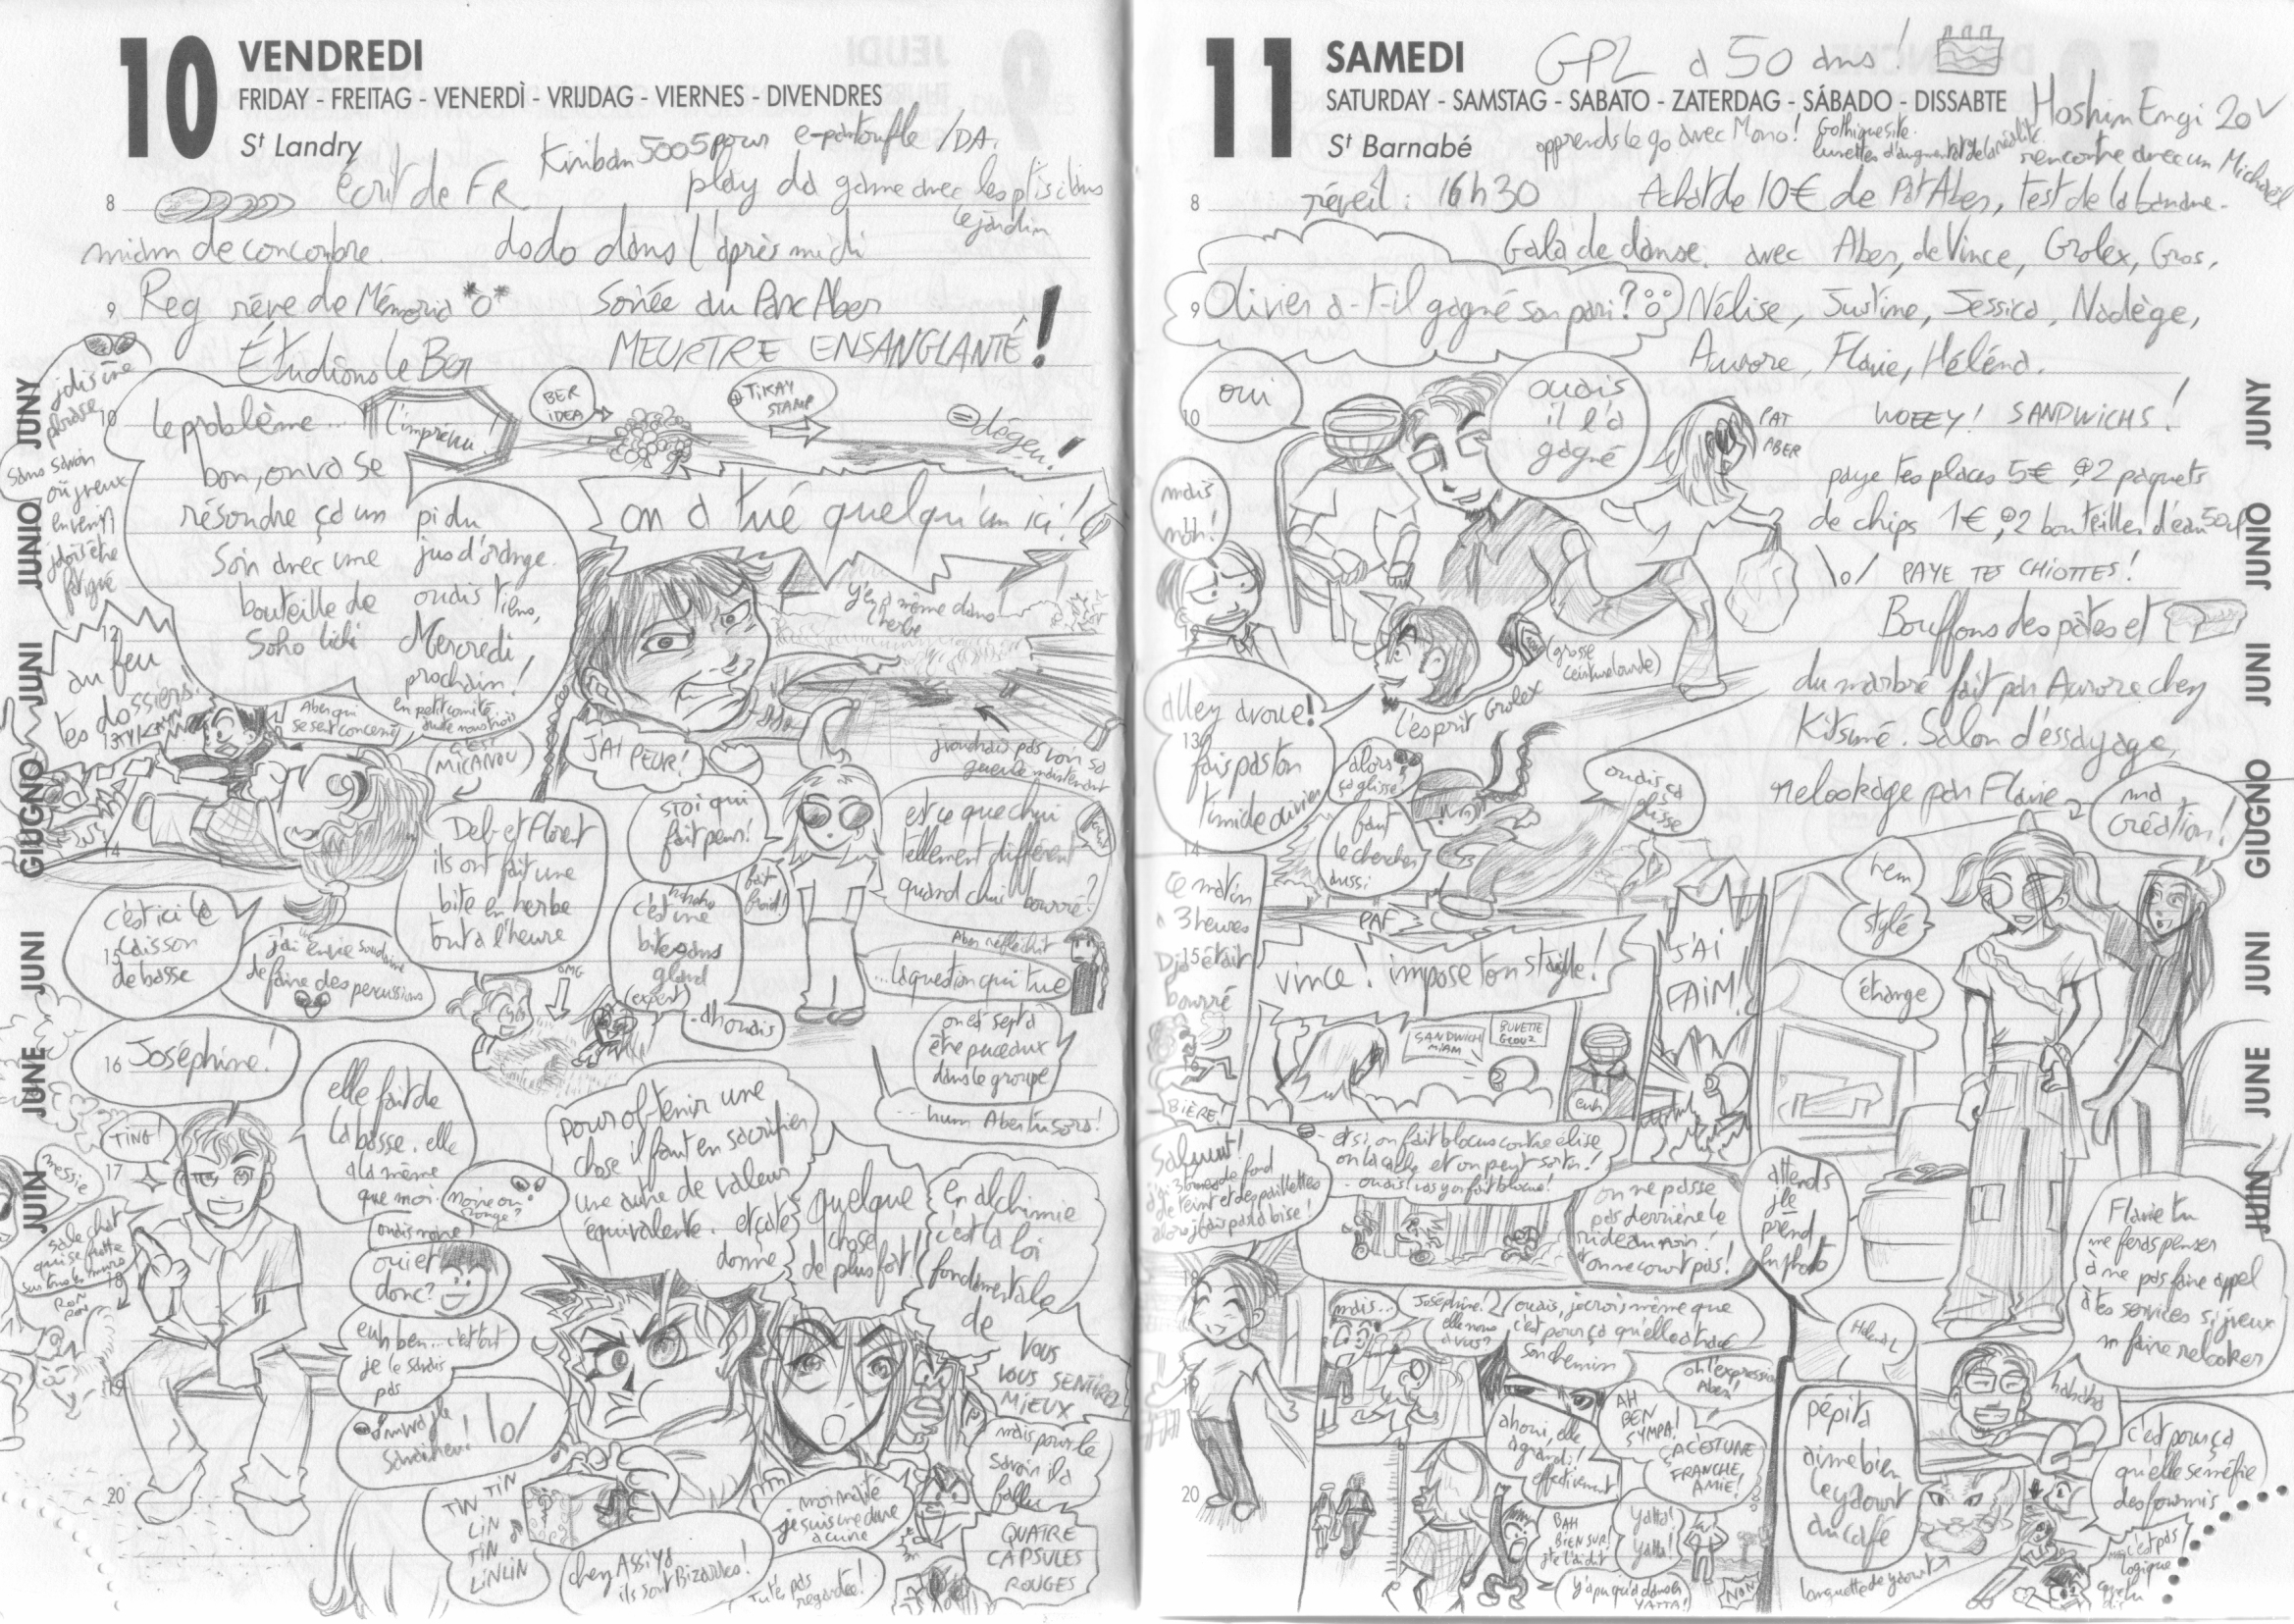 10 VENDREDI
FRIDAY - FREITAG - VENERDÌ - VRIJDAG - VIERNES - DIVENDRES
St Landry
Kiriban 5005 pour e-pantoufle /DA.
écrit de FR
play da game avec les ptis dans
le jardin
8
miam de concombre.
dodo dans l'après midi
9
Reg rêve de Mémoria *o*
Soirée au Parc Aber
Étudions le Ber
MEURTRE ENSANGLANTÉ!
j'dis une
phrase
sans savoir
où j'veux
en venir
j'dois être
fatigué
10
le problème...
l'imprévu!
bon, on va se
résoudre ça un
Soir avec une
bouteille de
Soho lichi
pi du
jus d'orange.
ouais
Mercredi
prochain!
en petit comité,
BER
IDEA
TIKAY
STAMP
=dégeu!
on a tué quelqu'un ici!
y'en a même dans
l'herbe
12
au feu
tes dossiers!
Aber qui
se sent concerné
C'EST
MICANOU
J'AI PEUR!
j'voudrais pas voir sa
gueule maintenant
14
Deb et Floret
ils ont fait une
bite en herbe
tout à l'heure
s'toi qui
fait peur!
est ce que chui
tellement différent
quand chui bourré?
fait
froid!
hahaha
c'est une
bite sans
gland
(expert)
.ah ouais
c'est ici le
caisson
de basse
15
j'ai envie soudaine
de faire des percussions
OMG
Aber réfléchit
...la question qui tue
on est sept à
être puceaux
dans le groupe
...hum Aber tu sors!
16
Joséphine!
elle fait de
la basse. elle
a la même
que moi.
TING!
messie
17
noire ou
rouge?
ouais noire
oui et
donc?
euh ben... c'est tout
je le savais
pas
\o/
sale chat
qui se frotte
sur tous les murs
RON
RON
18
19
20
pour obtenir une
chose il faut en sacrifier
une autre de valeur
équivalente. et ça te
donne
quelque
chose
de plus fort!
en alchimie
c'est la loi
fondamentale
de
VOUS
VOUS SENTIREZ
MIEUX
mais pour le
savoir il a
fallu
QUATRE
CAPSULES
ROUGES
TIN TIN
LIN
TIN
LINLIN
chez Assiya
ils sont Bizarres!
moi maté
je suis une dure
à cuire
Tu t'es pas
regardée!
JUNY JUNIO JUNI GIUGNO JUNI JUNE JUIN
11 SAMEDI
GPL a 50 ans!
SATURDAY - SAMSTAG - SABATO - ZATERDAG - SÁBADO - DISSABTE
St Barnabé
Hoshin Engi 20 V
apprends le go avec Mono!
Gothique site.
lunettes d'augmentat° de la réalité
rencontre avec un Michaël
8
réveil : 16h30
Achat de 10€ de Pat Aber, test de la banane.
Gala de danse. avec Aber, de Vince, Grolex, Gros,
9
Olivier a-t-il gagné son pari?
Nélise, Justine, Jessica, Nadège,
Aurore, Flavie, Héléna.
10
oui
ouais
il l'a
gagné
PAT
ABER
WOEEY! SANDWICHS!
mais
nôh!
paye tes places 5€ 2 paquets
de chips 1€ 2 bouteilles d'eau 50c
\o/ PAYE TES CHIOTTES!
Bouffons des pâtes et
12
(grosse
ceinture lourde)
du marbré fait par Aurore chez
Kitsuné. Salon d'éssayage,
relookage par Flavie
L'esprit Grolex
allez avoue!
13
fais pas ton
timide olivier
alors
ça glisse
faut
le chercher
aussi
ouais ça
glisse
ma
création!
14
PAF
Ce matin
à 3 heures
15
Dja était
bourré
BIÈRE!
vince! impose ton staïlle!
J'AI
FAIM!
hem
stylé
échange
SANDWICH
MIAM
BUVETTE
GLOUZ
euh
- et si on fait blocus contre élise
on la cache et on peut sortir!
- ouais! vas y on fait blocus!
Saluuut!
j'ai 3 tonnes de fond
de teint et des paillettes
alors j'fais pas la bise!
on ne passe
pas derrière le
rideau noir!
et on ne court pas!
attends
j'le
prend
en photo
Flavie tu
me feras penser
à ne pas faire appel
à tes services si j'veux
m'faire relooker
18
mais...
Joséphine!
elle nous
a vus?
ouais, je crois même que
c'est pour ça qu'elle a tracé
son chemin
oh l'expression
Aber!
19
ah oui, elle
a grandi!
effectivement
AH
BEN
SYMPA!
ÇA C'EST UNE
FRANCHE
AMIE!
20
BAH
BIEN SUR!
yatta!
yatta!
YATTA!
NON
hahaha
pépita
aime bien
le yaourt
au café
languette de yaourt
c'est pour ça
qu'elle se méfie
des fourmis
c'est pas
logique
JUNY JUNIO JUNI GIUGNO JUNI JUNE JUIN